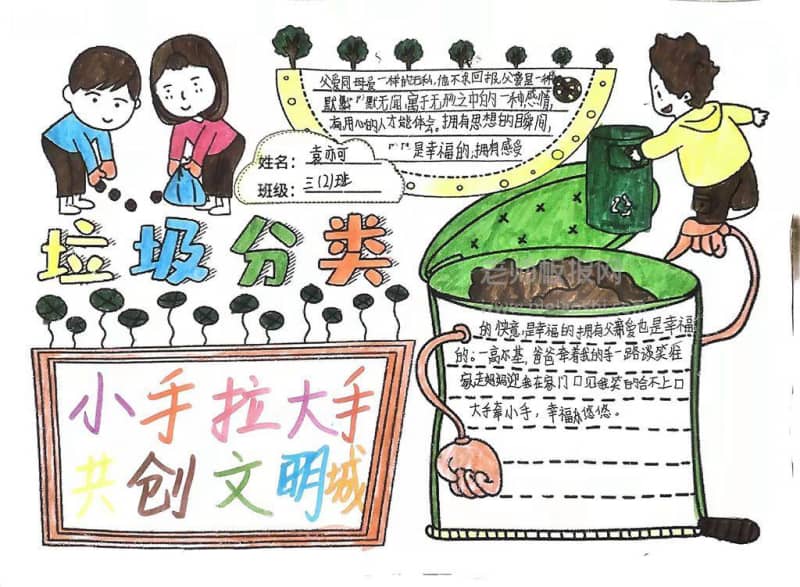 父爱同母爱一样的无私,他不求回报,父爱是一种
默默无闻,寓于无形之中的一种感情,
有用心的人才能体会。拥有思想的瞬间,
是幸福的,拥有感受
姓名: 袁亦可
班级: 三(2)班
垃圾分类
老师板报网
的快意,是幸福的,拥有父爱也是幸福
的。一高尔基,爸爸牵着我的手一路谈笑往
家走妈妈迎我在家门口见我笑的合不上口
大手牵小手,幸福久悠悠。
小手拉大手
共创文明城